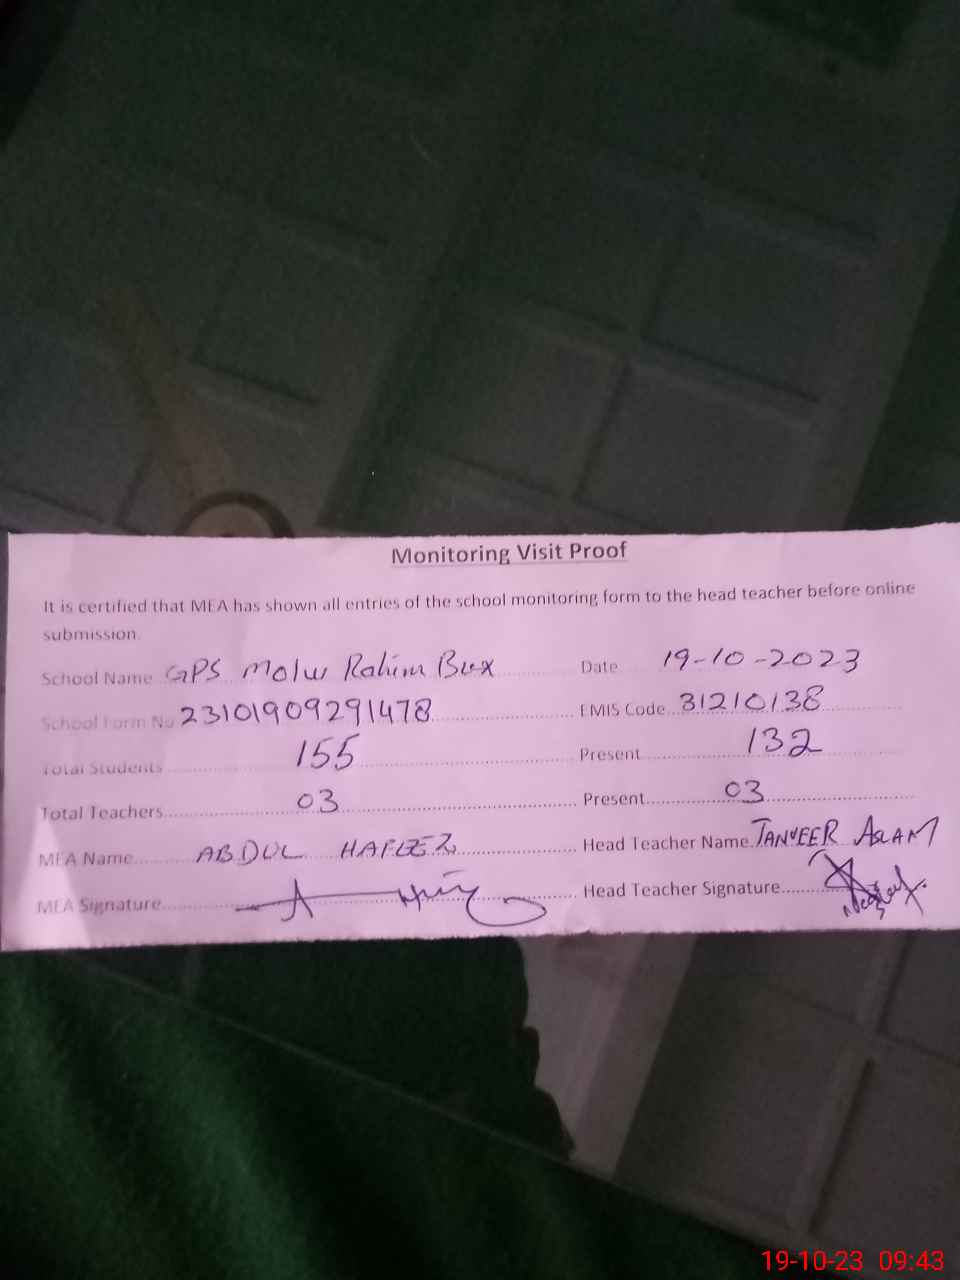 Monitoring Visit Proof
It is certified that MEA has shown all entries of the school monitoring form to the head teacher before online
submission.
School Name GPS Molw Rahim Bux Date 19-10-2023
School Form No 23101909291478 EMIS Code 31210138
Total Students 155 Present 132
Total Teachers 03 Present 03
MEA Name ABDUL HAFEEZ Head Teacher Name TANVEER ASLAM
MEA Signature Head Teacher Signature
19-10-23 09:43